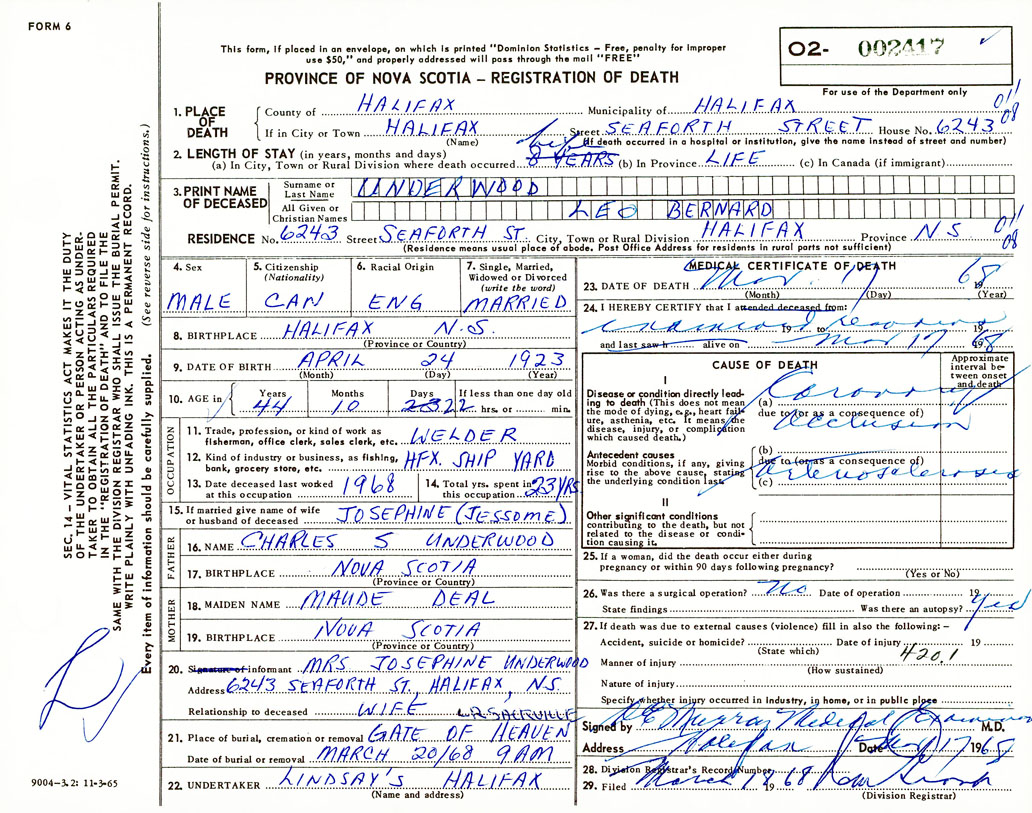 FORM 6
This form, if placed in an envelope, on which is printed "Dominion Statistics – Free, penalty for improper
use $50," and properly addressed will pass through the mail "FREE"
PROVINCE OF NOVA SCOTIA – REGISTRATION OF DEATH
02- 002417
For use of the Department only
SEC. 14 – VITAL STATISTICS ACT MAKES IT THE DUTY
OF THE UNDERTAKER OR PERSON ACTING AS UNDER-
TAKER TO OBTAIN ALL THE PARTICULARS REQUIRED
IN THE "REGISTRATION OF DEATH" AND TO FILE THE
SAME WITH THE DIVISION REGISTRAR WHO SHALL ISSUE THE BURIAL PERMIT.
WRITE PLAINLY WITH UNFADING INK. THIS IS A PERMANENT RECORD.
Every item of information should be carefully supplied. (See reverse side for instructions.)
1. PLACE OF DEATH
County of HALIFAX Municipality of HALIFAX 011
If in City or Town HALIFAX Street SEAFORTH STREET House No. 6243 08
(Name) (If death occurred in a hospital or institution, give the name instead of street and number)
2. LENGTH OF STAY (in years, months and days)
(a) In City, Town or Rural Division where death occurred life 8 YEARS (b) In Province LIFE (c) In Canada (if immigrant)
3. PRINT NAME OF DECEASED
Surname or Last Name UNDERWOOD
All Given or Christian Names LEO BERNARD
RESIDENCE No. 6243 Street SEAFORTH ST. City, Town or Rural Division HALIFAX Province N S 011 08
(Residence means usual place of abode. Post Office Address for residents in rural parts not sufficient)
4. Sex MALE
5. Citizenship (Nationality) CAN
6. Racial Origin ENG
7. Single, Married, Widowed or Divorced (write the word) MARRIED
8. BIRTHPLACE HALIFAX N.S.
(Province or Country)
9. DATE OF BIRTH APRIL 24 1923
(Month) (Day) (Year)
10. AGE in Years 44 Months 10 Days 23 22 If less than one day old hrs. or min.
OCCUPATION
11. Trade, profession, or kind of work as
fisherman, office clerk, sales clerk, etc. WELDER
12. Kind of industry or business, as fishing,
bank, grocery store, etc. HFX. SHIP YARD
13. Date deceased last worked
at this occupation 1968
14. Total yrs. spent in
this occupation 23 YRS
15. If married give name of wife
or husband of deceased JOSEPHINE (JESSOME)
FATHER
16. NAME CHARLES S UNDERWOOD
17. BIRTHPLACE NOVA SCOTIA
(Province or Country)
MOTHER
18. MAIDEN NAME MAUDE DEAL
19. BIRTHPLACE NOVA SCOTIA
(Province or Country)
20. Signature of informant MRS JOSEPHINE UNDERWOOD
Address 6243 SEAFORTH ST., HALIFAX, N.S.
Relationship to deceased WIFE LR. SACKVILLE
21. Place of burial, cremation or removal GATE OF HEAVEN
Date of burial or removal MARCH 20/68 9 AM
22. UNDERTAKER LINDSAY'S HALIFAX
(Name and address)
9004–3.2: 11-3-65
MEDICAL CERTIFICATE OF DEATH
23. DATE OF DEATH Mar. 17 1968
(Month) (Day) (Year)
24. I HEREBY CERTIFY that I attended deceased from:
examined deceased 19 to 19
and last saw h alive on Mar 17 1968
CAUSE OF DEATH
Approximate interval between onset and death
I
Disease or condition directly leading to death (This does not mean the mode of dying, e.g., heart failure, asthenia, etc. It means the disease, injury, or complication which caused death.)
(a) Coronary
due to (or as a consequence of)
Occlusion
Antecedent causes
Morbid conditions, if any, giving rise to the above cause, stating the underlying condition last.
(b)
due to (or as a consequence of)
(c) Arteriosclerosis
II
Other significant conditions contributing to the death, but not related to the disease or condition causing it.
25. If a woman, did the death occur either during
pregnancy or within 90 days following pregnancy?
(Yes or No)
26. Was there a surgical operation? No Date of operation 19
State findings Was there an autopsy? Yes
27. If death was due to external causes (violence) fill in also the following:–
Accident, suicide or homicide? Date of injury 19
(State which) 420.1
Manner of injury
(How sustained)
Nature of injury
Specify whether injury occurred in industry, in home, or in public place
Signed by Murray Medical Examiner M.D.
Address Halifax Date Mar 17 1968
28. Division Registrar's Record Number
29. Filed March 18 1968
(Division Registrar)